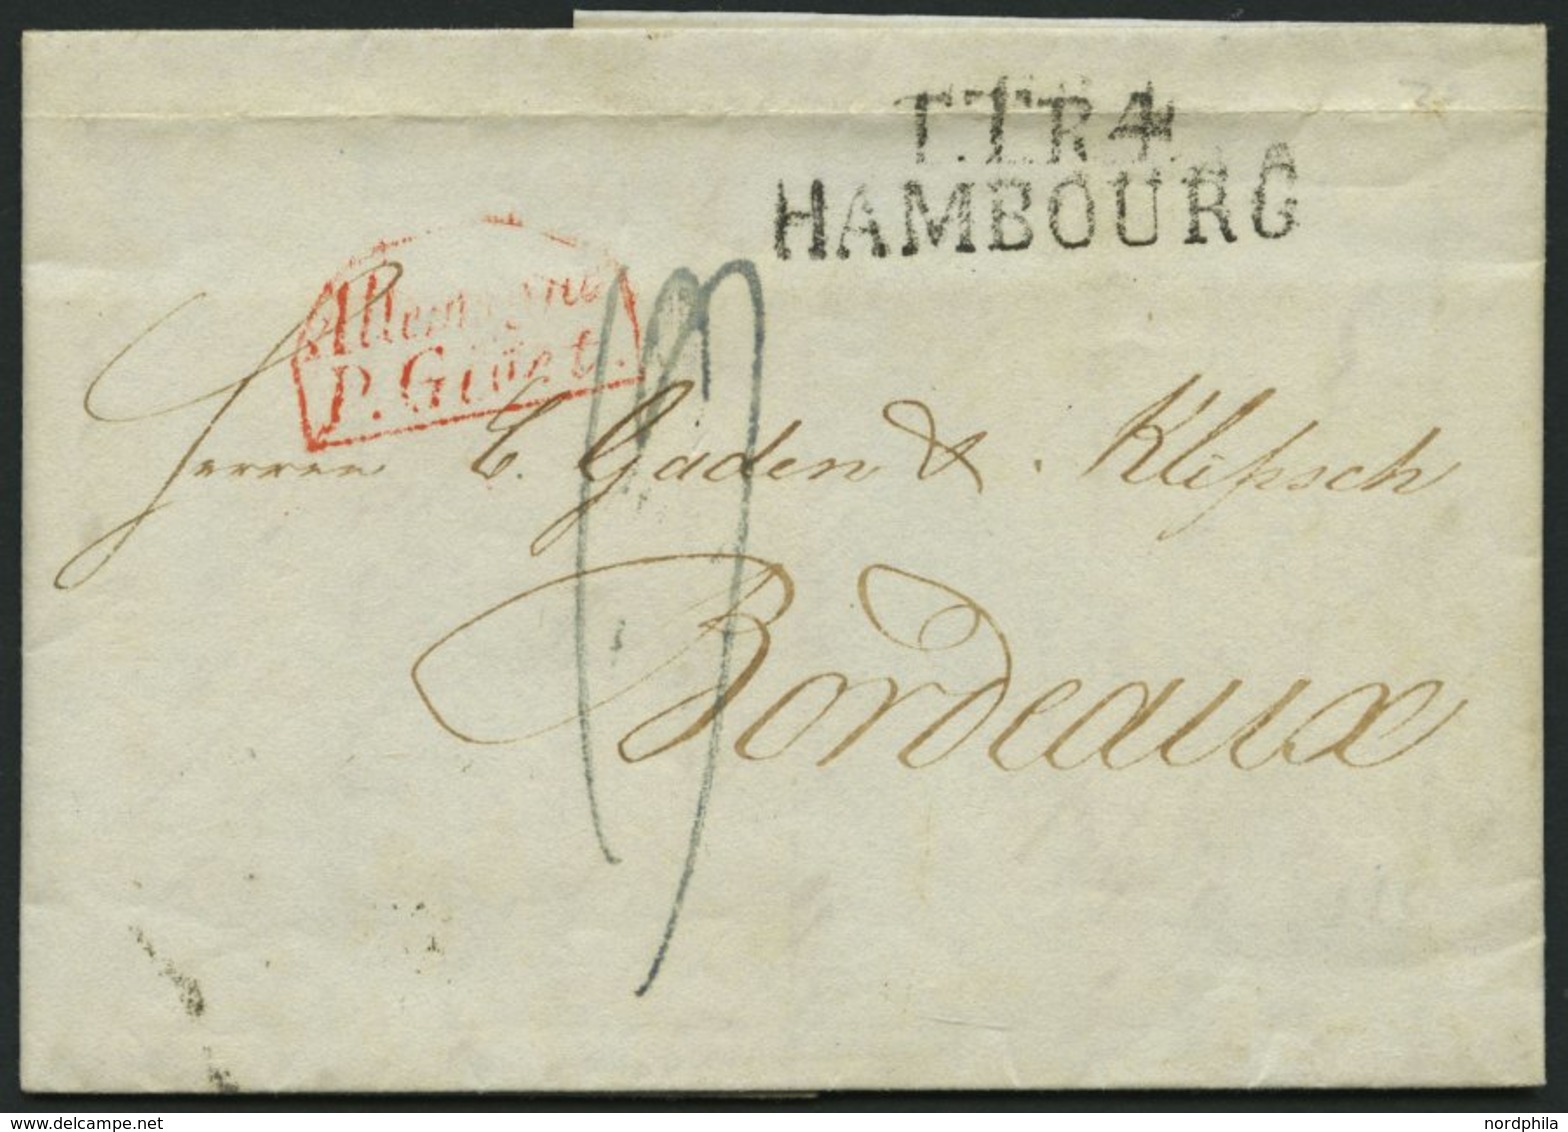 T.T.R.4.
HAMBOURG
Allemagne
P. Givet.
Herren C. Gaden & Klipsch
Bordeaux
19
delcampe.net
nordphila